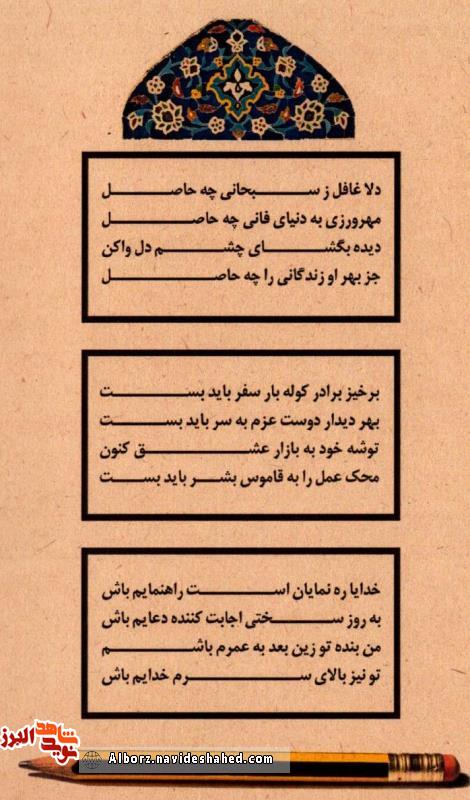 دلا غافل ز سبحانی چه حاصل
مهرورزی به دنیای فانی چه حاصل
دیده بگشای چشم دل واکن
جز بهر او زندگانی را چه حاصل
برخیز برادر کوله بار سفر باید بست
بهر دیدار دوست عزم به سر باید بست
توشه خود به بازار عشق کنون
محک عمل را به قاموس بشر باید بست
خدایا ره نمایان است راهنمایم باش
به روز سختی اجابت کننده دعایم باش
من بنده تو زین بعد به عمرم باشم
تو نیز بالای سرم خدایم باش
نوید شاهد البرز
Alborz.navideshahed.com